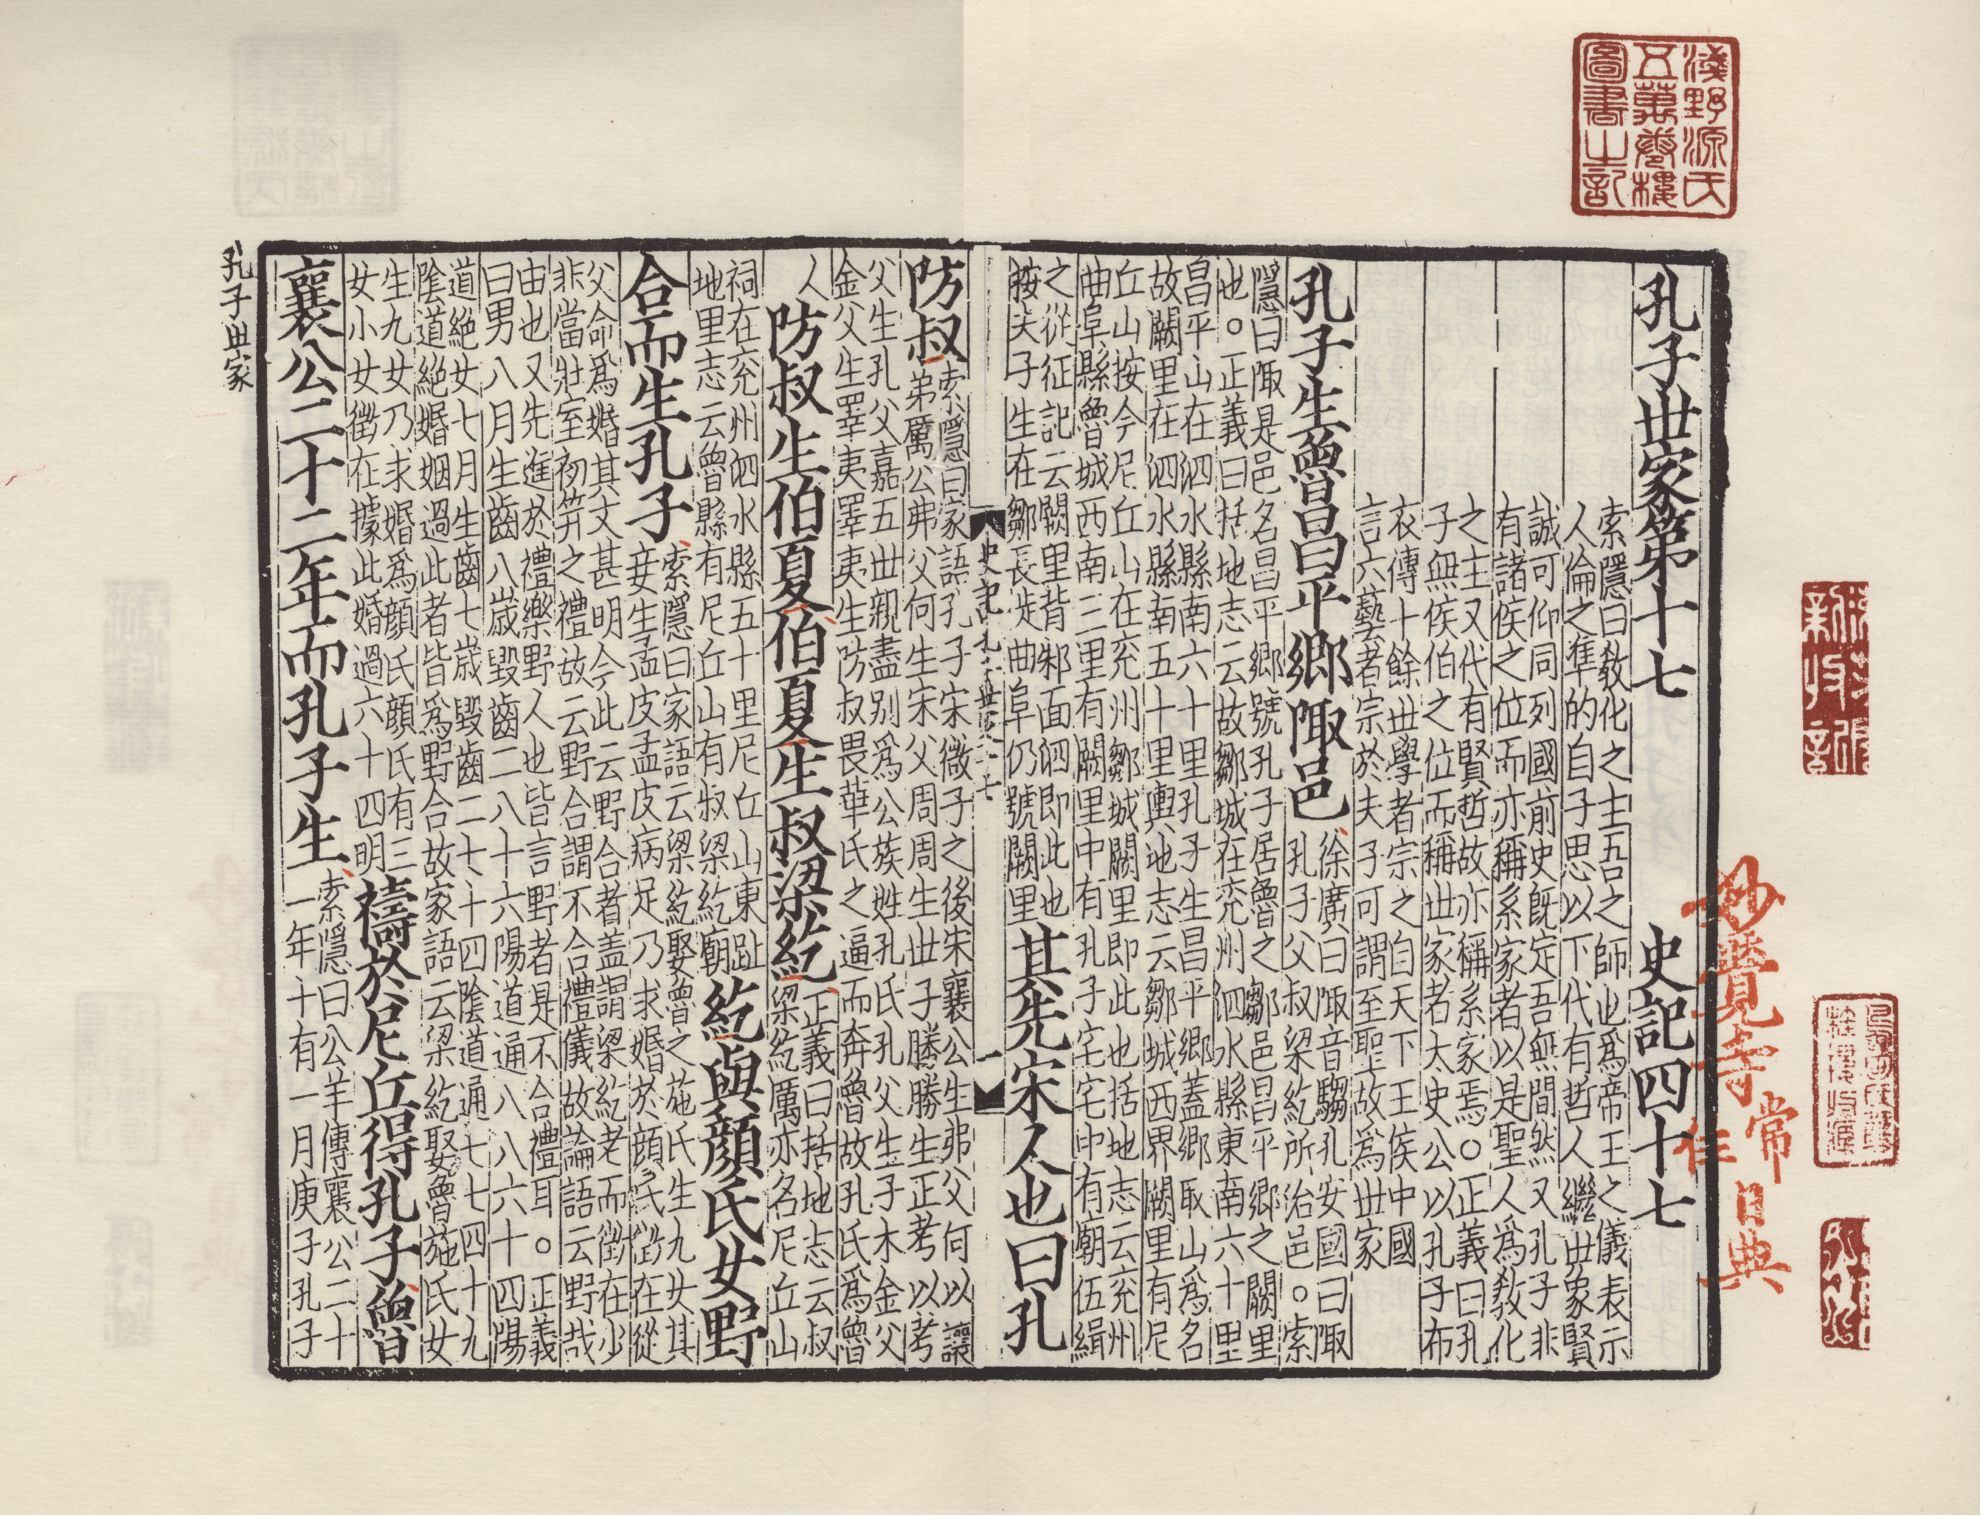 淺野源氏
五萬卷樓
圖書之記
妙覺寺常住日典
孔子世家第十七　史記四十七
索隱曰敎化之主吾之師也爲帝王之儀表示
人倫之準的自子思以下代有哲人繼世象賢
誠可仰同列國前史旣定吾無間然又孔子非
有諸侯之位而亦稱系家者以是聖人爲敎化
之主又代有賢哲故亦稱系家焉。正義曰孔
子無侯伯之位而稱世家者太史公以孔子布
衣傳十餘世學者宗之自天下王侯中國
言六藝者宗於夫子可謂至聖故爲世家
孔子生魯昌平鄉陬邑
徐廣曰陬音騶孔安國曰陬
孔子父叔梁紇所治邑。索
隱曰陬是邑名昌平鄉號孔子居魯之鄒邑昌平鄉之闕里
也。正義曰括地志云故鄒城在兖州泗水縣東南六十里
昌平山在泗水縣南六十里孔子生昌平鄉蓋鄉取山爲名
故闕里在泗水縣南五十里輿地志云鄒城西界闕里有尼
丘山按今尼丘山在兖州鄒城闕里即此也括地志云兖州
曲阜縣魯城西南三里有闕里中有孔子宅宅中有廟伍緝
之從征記云闕里背邾面泗即此也
按夫子生在鄒長徙曲阜仍號闕里
其先宋人也曰孔
史記孔子世家十七
防叔
索隱曰家語孔子宋微子之後宋襄公生弗父何以讓
弟厲公弗父何生宋父周周生世子勝勝生正考以考
父生孔父嘉五世親盡別爲公族姓孔氏孔父生子木金父
金父生睪夷睪夷生防叔畏華氏之逼而奔魯故孔氏爲魯
人
防叔生伯夏伯夏生叔梁紇
正義曰括地志云叔
梁紇廟亦名尼丘山
祠在兖州泗水縣五十里尼丘山東趾
地里志云魯縣有尼丘山有叔梁紇廟
紇與顏氏女野
合而生孔子
索隱曰家語云梁紇娶魯之施氏生九女其
妾生孟皮孟皮病足乃求婚於顏氏徵在從
父命爲婚其文甚明今此云野合者盖謂梁紇老而徵在少
非當壯室初筓之禮故云野合謂不合禮儀故論語云野哉
由也又先進於禮樂野人也皆言野者是不合禮耳。正義
曰男八月生齒八歲毀齒二八十六陽道通八八六十四陽
道絕女七月生齒七歲毀齒二七十四陰道通七七四十九
陰道絕婚姻過此者皆爲野合故家語云梁紇娶魯施氏女
生九女乃求婚爲顏氏顏氏有三
女小女徵在據此婚過六十四明
禱於尼丘得孔子魯
襄公二十二年而孔子生
索隱曰公羊傳襄公二十
一年十有一月庚子孔子
孔子世家